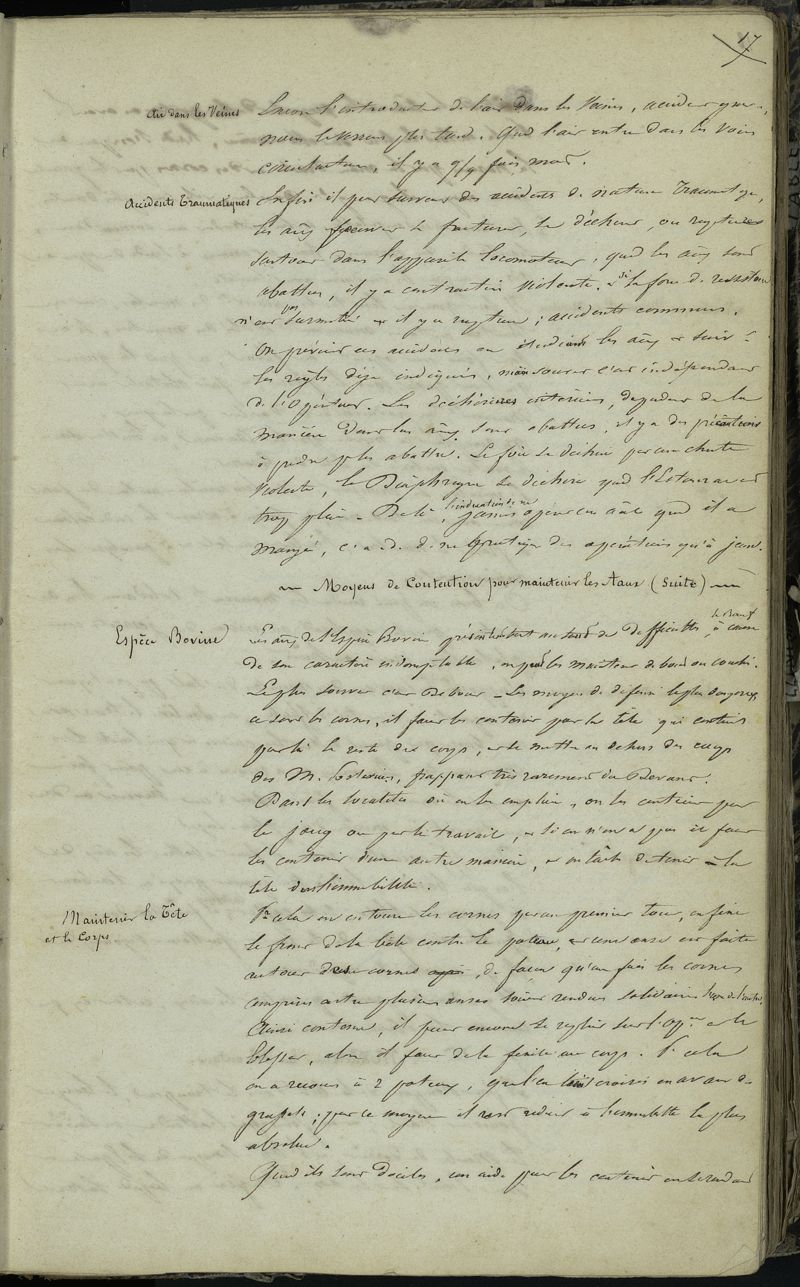 17
Air dans les Veines
Encore l'introduction de l'air dans les Veines, accident que
nous verrons plus tard. Qud l'air entre dans les voies
circulatoires, il y a qq fois mort.
Accidents Traumatiques
Enfin il peut survenir des accidents de nature Traumatique,
les aux peuvent se fracturer, se déchirer, ou rupture
surtout dans l'appareil locomoteur, qud les aux sont
abattus, il y a contraction violente. si la force de resistance
n'est pas surmonté et il y a rupture ; accidents communs.
On prévient ces accidents en étudiant les aux et suivt
les règles déjà indiquées, mais souvent c'est indépendant
de l'Opérateur. Les déchirures intérieures, dependent de la
manière dont les aux sont abattus, il y a des précautions
à prendre pr les abattre. Le foie se déchire par une chute
violente, le Diaphragme se déchire qud l'Estomac est
trop plein. De là, l'indication de ne jamais opérer un aal qud il a
mangé, c. a. d. de ne pratiquer des opérations qu'à jeun.
Moyens de Contention pour maintenir les Aaux (Suite)
Espèce Bovine
Les aux de l'Espèce Bovine présentent de Difficultés, le Bœuf à cause
de son caractère indomptable, on peut les maintenir debout ou couché.
Le plus souvent c'est Debout. Les moyens de défense le plus dangereux,
ce sont les cornes, il faut les contenir par la tête qui contient
par là le reste du corps, et se mettre en dehors des coups
des M. Postérieurs, frappant très rarement du Devant.
Dans les localités où on les emploie, on les contient par
le joug ou par le travail, et si on n'en a pas il faut
les contenir d'une autre manière, et on tâche de tenir la
tête dans l'immobilité.
Maintenir la Tête
et le Corps
Pr cela on entoure les cornes par un premier tour, on fixe
le front de la bête contre le poteau, et une anse est faite
autour des cornes, de façon qu'on fait les cornes
comprises entre plusieurs anses soient rendues solidaires l'une de l'autre.
Ainsi contenu, il peut encore se replier sur l'opr et le
blesser, alors il faut de la fixité au corps. Pr cela
on a recours à 2 poteaux,
par ce moyen il est réduit à l'immobilité la plus
absolue.
Quand ils sont dociles, un aide peut les contenir en tendant